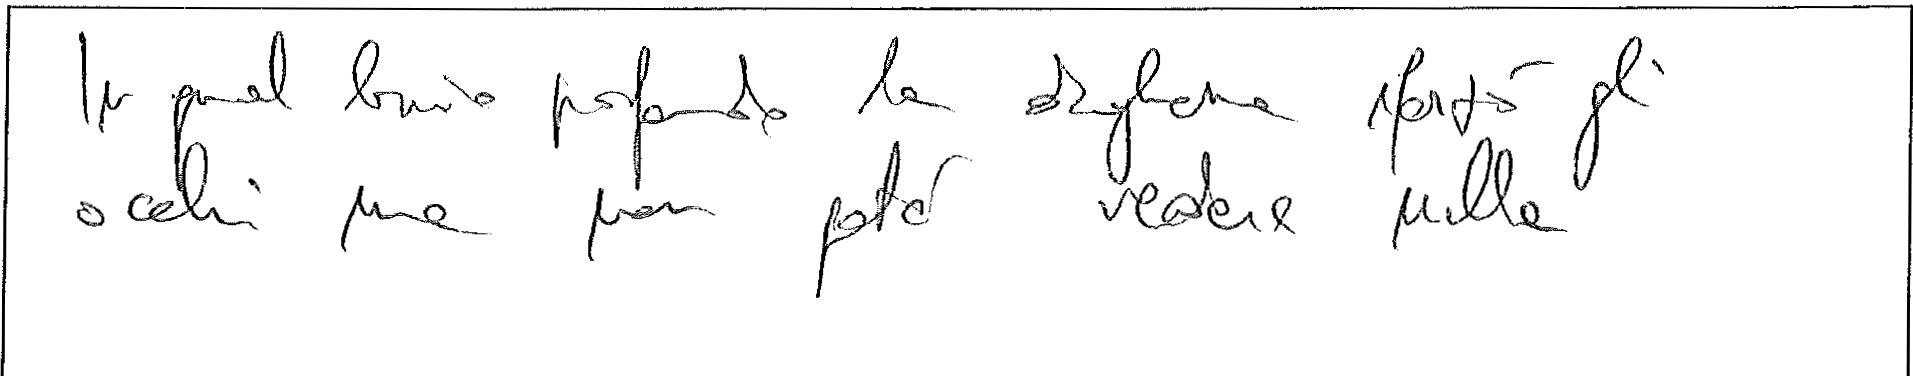 In quel buio profondo la struggente sforzò gli
occhi ma non poté vedere nulla